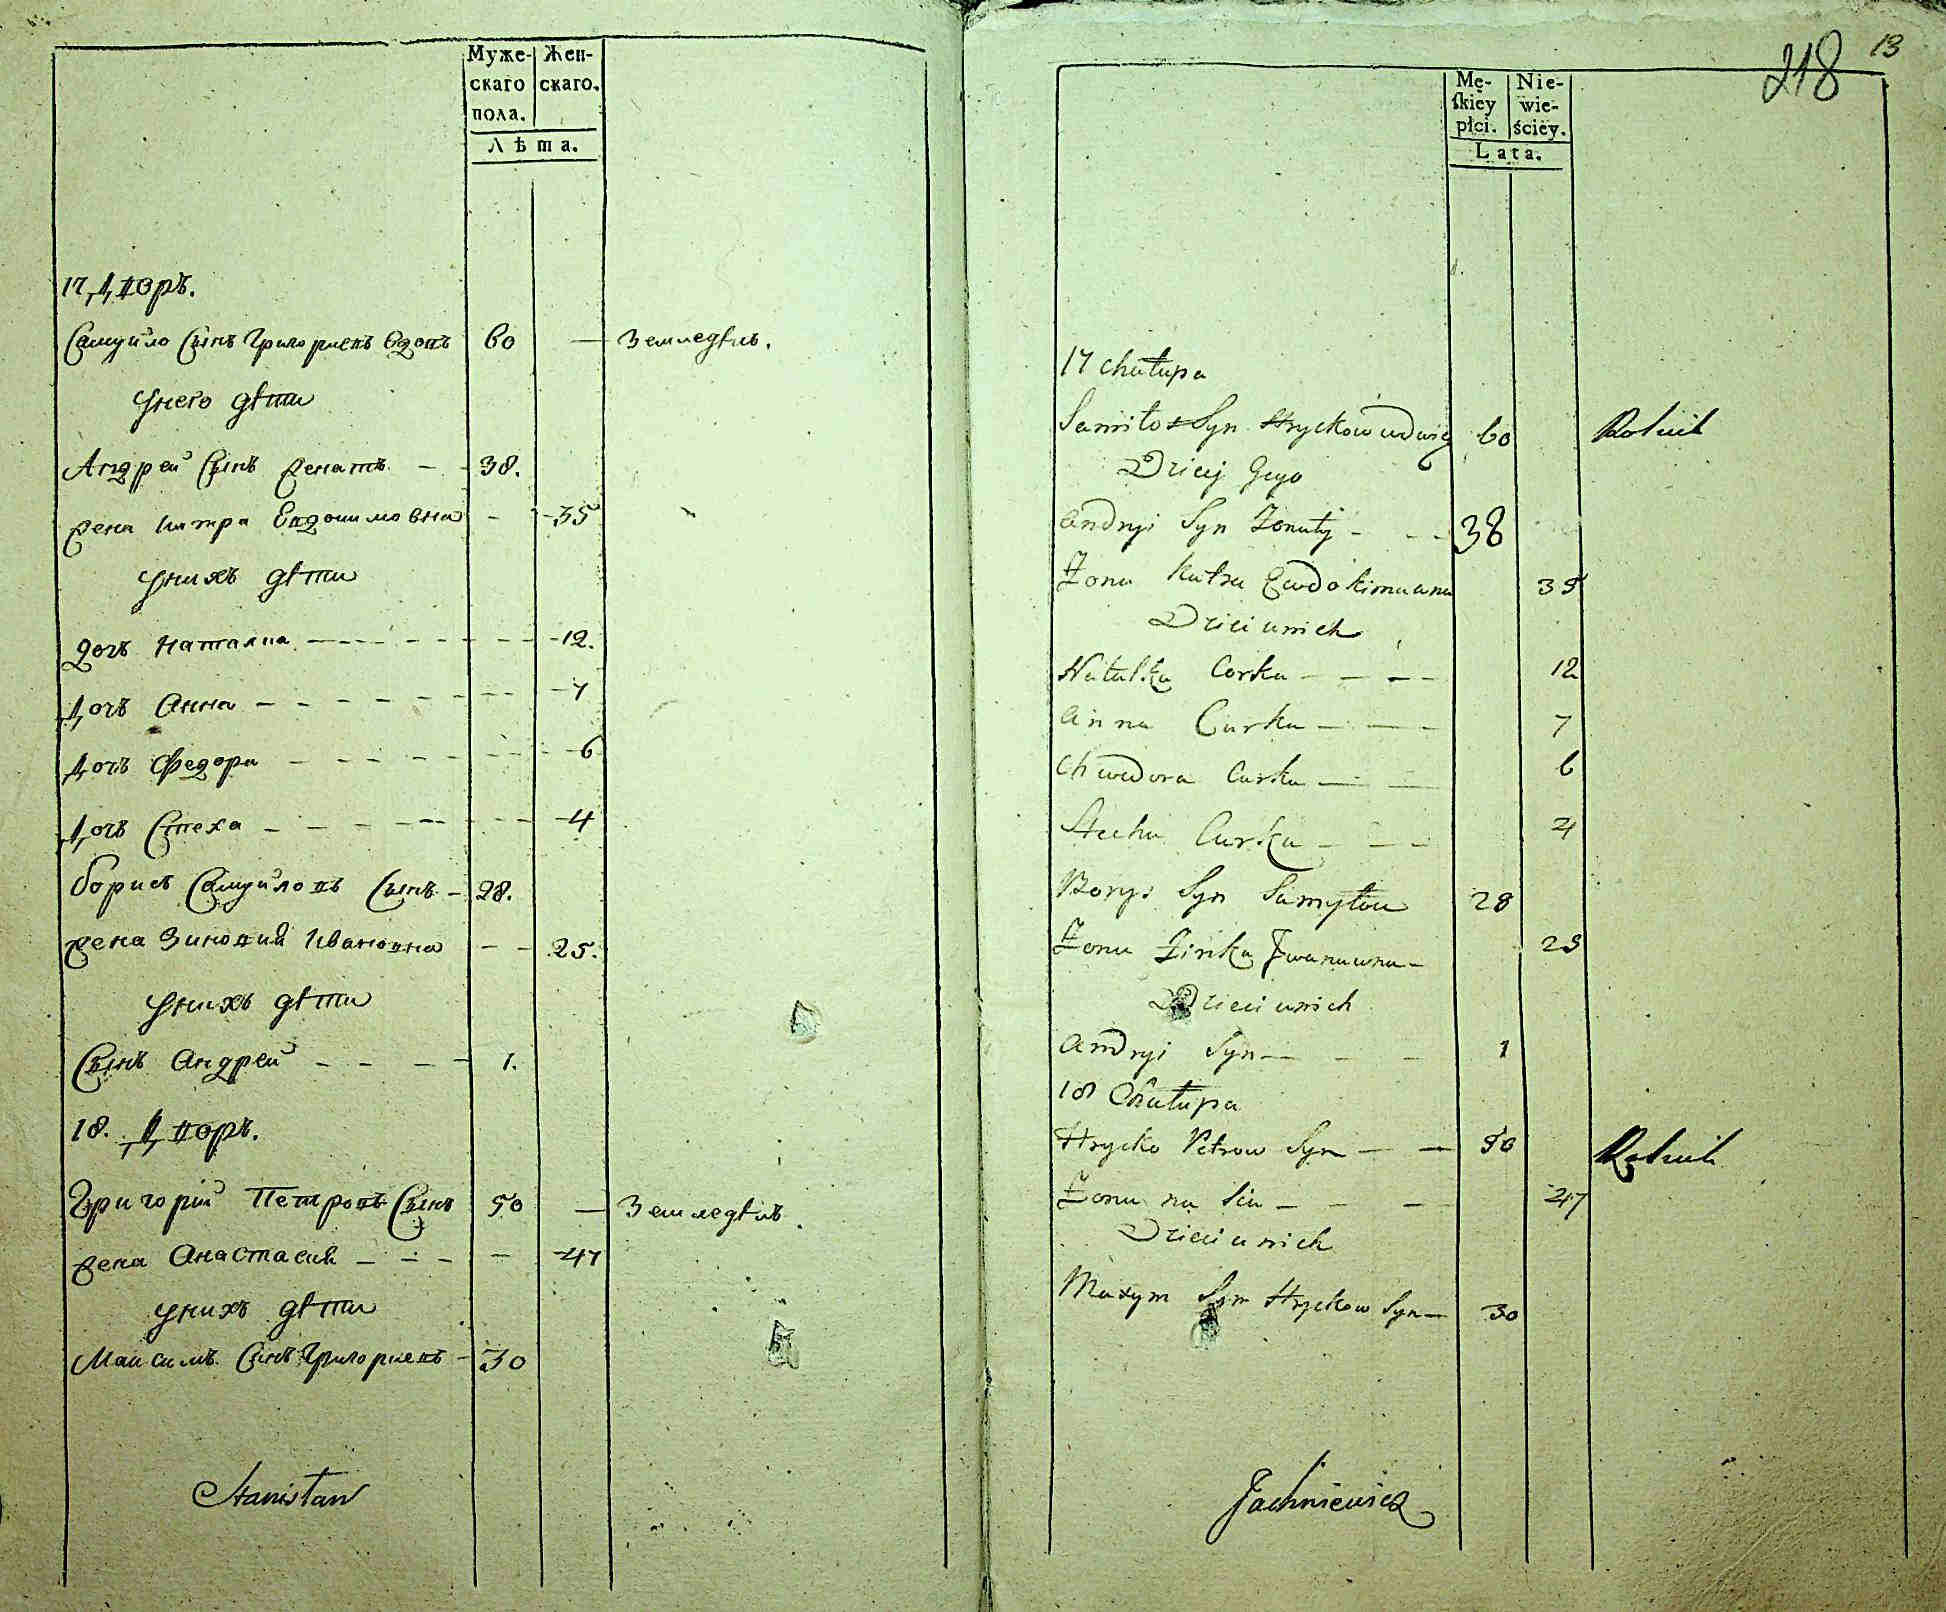 Муже- Жен-
скаго скаго.
пола.
Лѣта.
17, Дворъ.
Самуйло Сынъ Григориевъ Вдовъ 60 — Земледѣлъ.
Унего дѣти
Андрей Сынъ Женатъ — - 38.
Жена Катра Евдокимовна - - 35
Унихъ дѣти
Дочь Наталиа — — — - - - 12.
Дочь Анна — - - - - - - - 7
Дочь Федора — - - - - - - 6
Дочь Стеха — - - - - - - 4
Борисъ Самуйловъ Сынъ - 28.
Жена Зиновия Ивановна - - 25.
Унихъ дѣти
Сынъ Андрей — - — - 1.
18. Дворъ.
Григорій Петровъ Сынъ 50 — Земледѣлъ.
Жена Анастасия — - - - 47
Унихъ дѣти
Максимъ Сынъ Григориевъ - 30
Stanisław
13
218
Mę- Nie-
ſkiey wie-
płci. ściey.
Lata.
17 chałupa
Samiło Syn Hryckow wdwiec 60 Rolnik
Dzieci Jego
Andryi Syn Żonaty - - - 38
Żona Katra Ewdokimawna 35
Dzieci unich
Natalka Corka - - - - 12
Anna Curka — - - 7
Chwedora Curka — - — 6
Stecha Curka - - - 4
Borys Syn Samyłow 28
Żona Zinka Iwanawna - 25
Dzieci unich
Andryi Syn — - - 1
18 Chałupa
Hrycko Petrow Syn — — 50 Rolnik
Żona na sia - - - — 47
Dzieci unich
Maxym Syn Hryckow Syn — 30
Jachniewicz